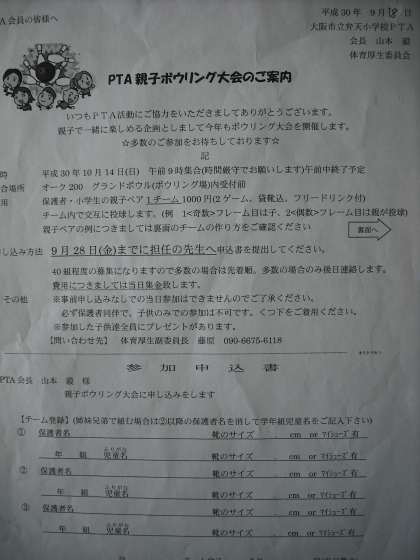 A会員の皆様へ
平成30年 9月18日
大阪市立弁天小学校PTA
会長 山本
体育厚生委員会
PTA親子ボウリング大会のご案内
いつもPTA活動にご協力をいただきましてありがとうございます。
親子で一緒に楽しめる企画としまして今年もボウリング大会を開催します。
☆多数のご参加をお待ちしております☆
記
時 平成30年10月14日(日) 午前9時集合(時間厳守でお願いします)午前中終了予定
合場所 オーク200 グランドボウル(ボウリング場)内受付前
用 保護者・小学生の親子ペア1チーム1000円(2ゲーム、貸靴込、フリードリンク付)
チーム内で交互に投球します。(例 1<奇数>フレーム目は子、2<偶数>フレーム目は親が投球)
親子ペアの例につきましては裏面のチームの作り方をご確認ください
裏面へ
し込み方法 9月28日(金)までに担任の先生へ申込書を提出してください。
40組程度の募集になりますので多数の場合は先着順。多数の場合のみ後日連絡します。
費用につきましては当日集金致します。
その他 ※事前申し込みなしでの当日参加はできませんのでご了承ください。
必ず保護者同伴で、子供のみでの参加は不可です。くつ下をご着用ください。
※参加した子供達全員にプレゼントがあります。
【問い合わせ先】 体育厚生副委員長 藤原 090-6675-6118
キリトリセン
参加申込書
PTA会長 山本 様
親子ボウリング大会に申し込みをします
【チーム登録】(姉妹兄弟で組む場合は②以降の保護者名を消して学年組児童名をご記入下さい)
① 保護者名 靴のサイズ . cm or マイシューズ有
年 組 児童名 靴のサイズ . cm or マイシューズ有
② 保護者名 靴のサイズ . cm or マイシューズ有
年 組 児童名 靴のサイズ . cm or マイシューズ有
③ 保護者名 靴のサイズ . cm or マイシューズ有
年 組 児童名 靴のサイズ . cm or マイシューズ有